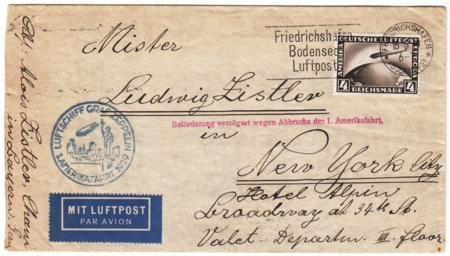 Mister
Ludwig Zistler
in
New York City
Hotel Alpin
Broadway at 34th St.
Valet-Departm. III. Floor.
Friedrichshafen
Bodensee
Luftpost
DEUTSCHE LUFTPOST
4 REICHSMARK 4
FRIEDRICHSHAFEN
Beförderung verzögert wegen Abbruchs der 1. Amerikafahrt.
LUFTSCHIFF GRAF ZEPPELIN
AMERIKAFAHRT 1929
MIT LUFTPOST
PAR AVION
Alois Zistler, Cham
in Bayern,